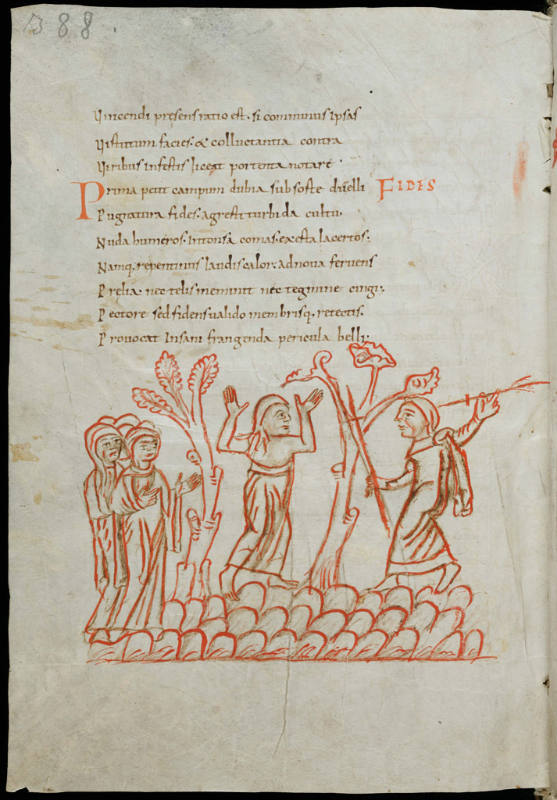 388
Vincendi presens ratio est. si comminus ipsas
Virtutum facies. & colluctantia contra
Viribus infestis liceat portenta notare.
Prima petit campum dubia sub sorte duelli FIDES
Pugnatura fides. agresti turbida cultu.
Nuda humeros. intonsa comas. exerta lacertos.
Namq. repentinus laudis calor. ad nova fervens
Prelia. nec telis meminit nec tegmine cingi.
Pectore sed fidens valido membrisq. retectis.
Provocat insani frangenda pericula belli.